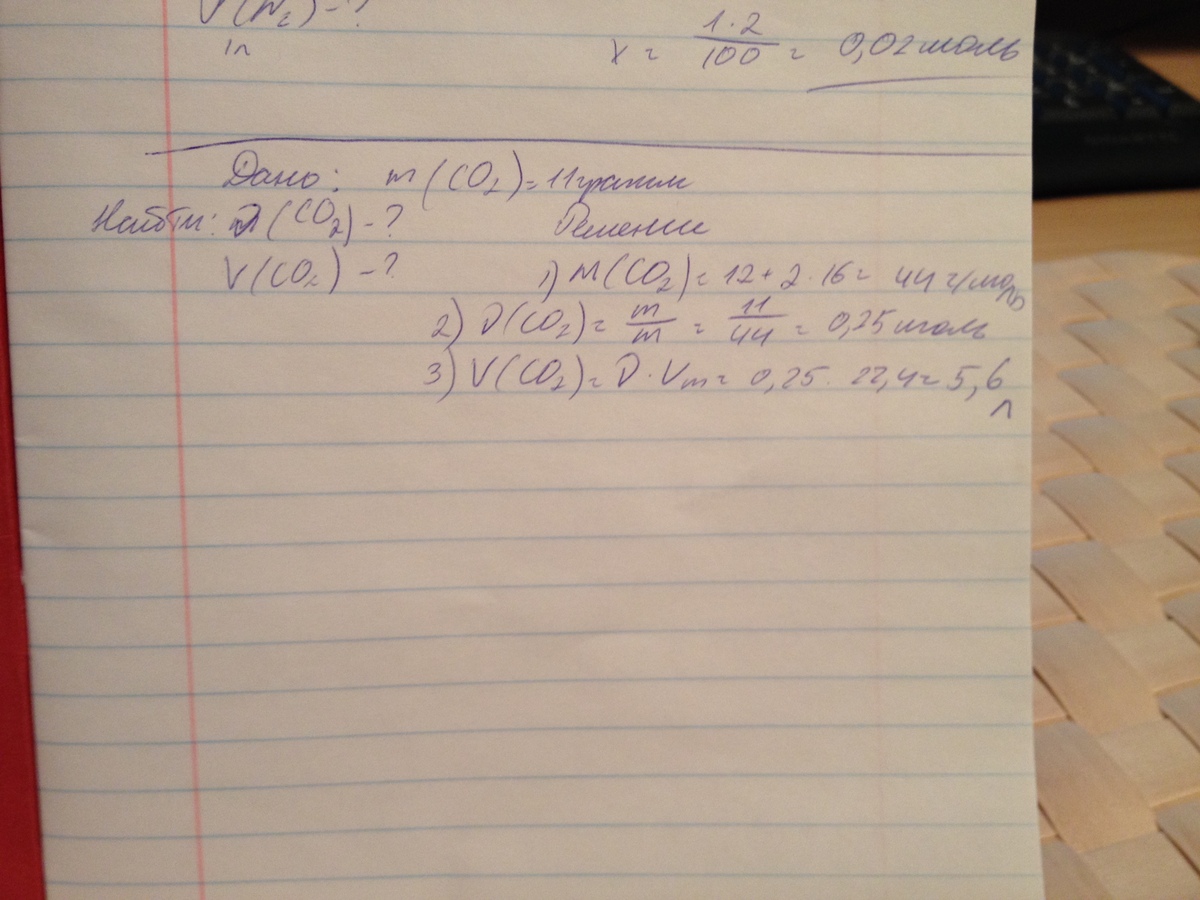 V(N₂) - ?
1л
x = 1·2/100 = 0,02 моль
Дано: m(CO₂) = 11 грамм
Найти: ν(CO₂) - ?
Решение
V(CO₂) - ?
1) M(CO₂) = 12 + 2·16 = 44 г/моль
2) ν(CO₂) = m/m = 11/44 = 0,25 моль
3) V(CO₂) = ν·Vm = 0,25·22,4 = 5,6
л